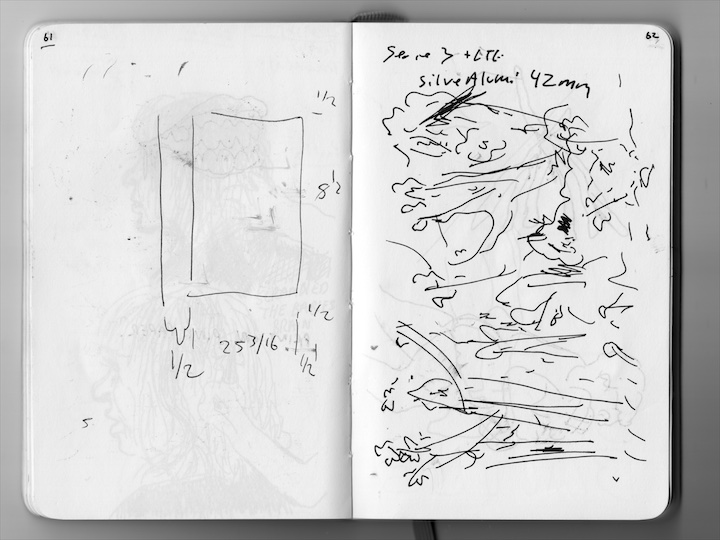 61
1/2
8 1/2
1/2
1/2
25 3/16
1/2
5
62
Serie 3 + LTE
silver Alumi 42mm